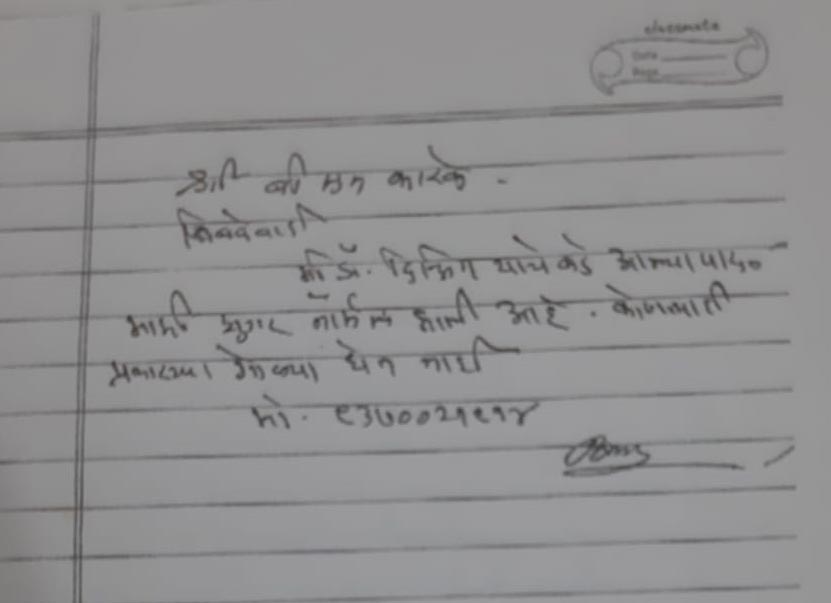 classmate
Date
Page
श्री
बिबवेवाडी
मी डॉ. यांचे कडे आल्या पासून
माझी शुगर नॉर्मल झाली आहे. कोणत्याही
प्रकारच्या गोळ्या घेत नाही
मो. ९३७००२१९१४